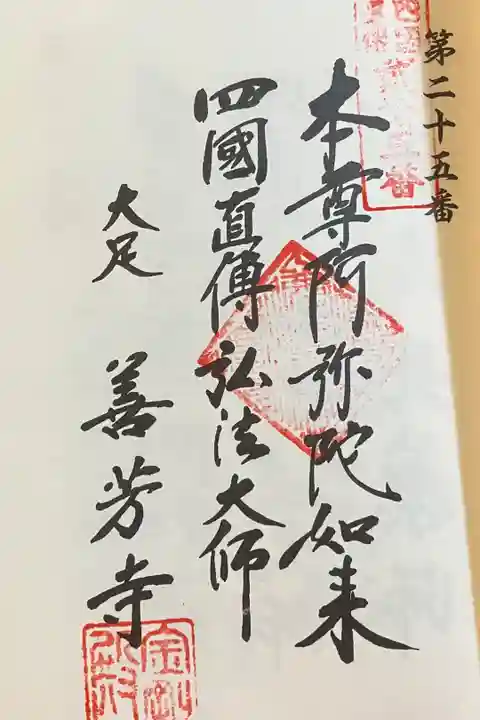 第二十五番
本尊阿弥陀如来
四國直傳弘法大师
大足 善芳寺